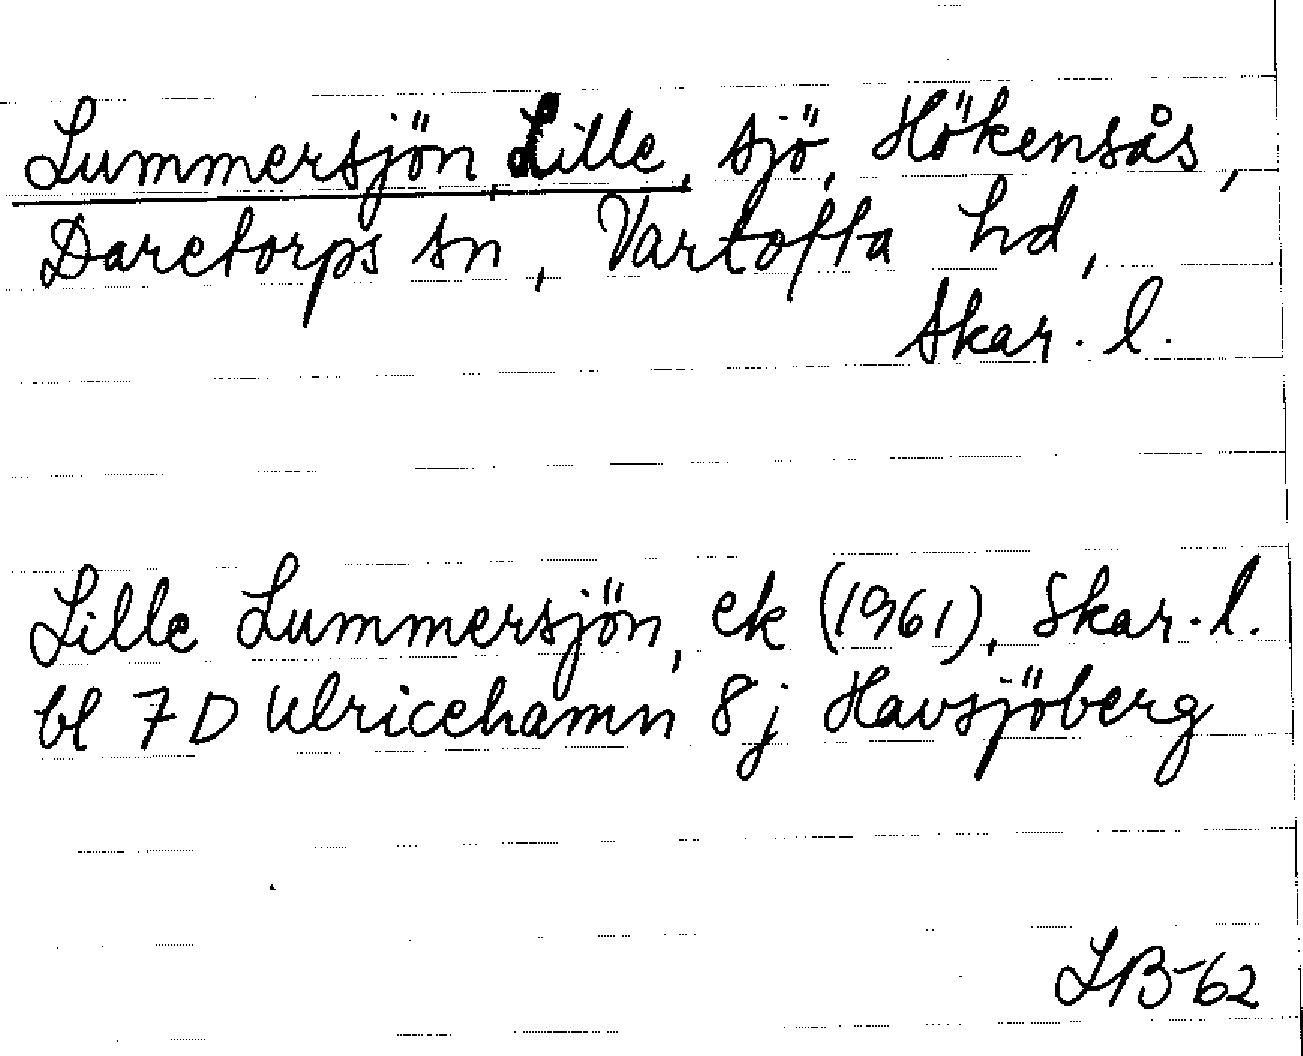 Lummersjön, Lille, sjö, Hökensås,
Daretorps sn, Vartofta hd,
Skar. l.
Lille Lummersjön, ek (1961), Skar. l.
bl 7 D Ulricehamn 8 j Havsjöberg
LB-62